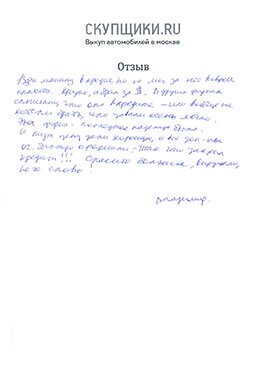 СКУПЩИКИ.RU
Выкуп автомобилей в москве
Отзыв
Взял машину в кредит, но не мог за нее вовремя
платить. Кредит, я брал за 3. В других фирмах
слышали что она в кредите – или вообще не
хотели брать, или давали очень мало.
Эта фирма – последняя надежда была.
И ведь цену дали хорошую, и все
быстро оформили – Так что закрыл
кредит!!! Спасибо большое, выручили,
нет слов!
Владимир.